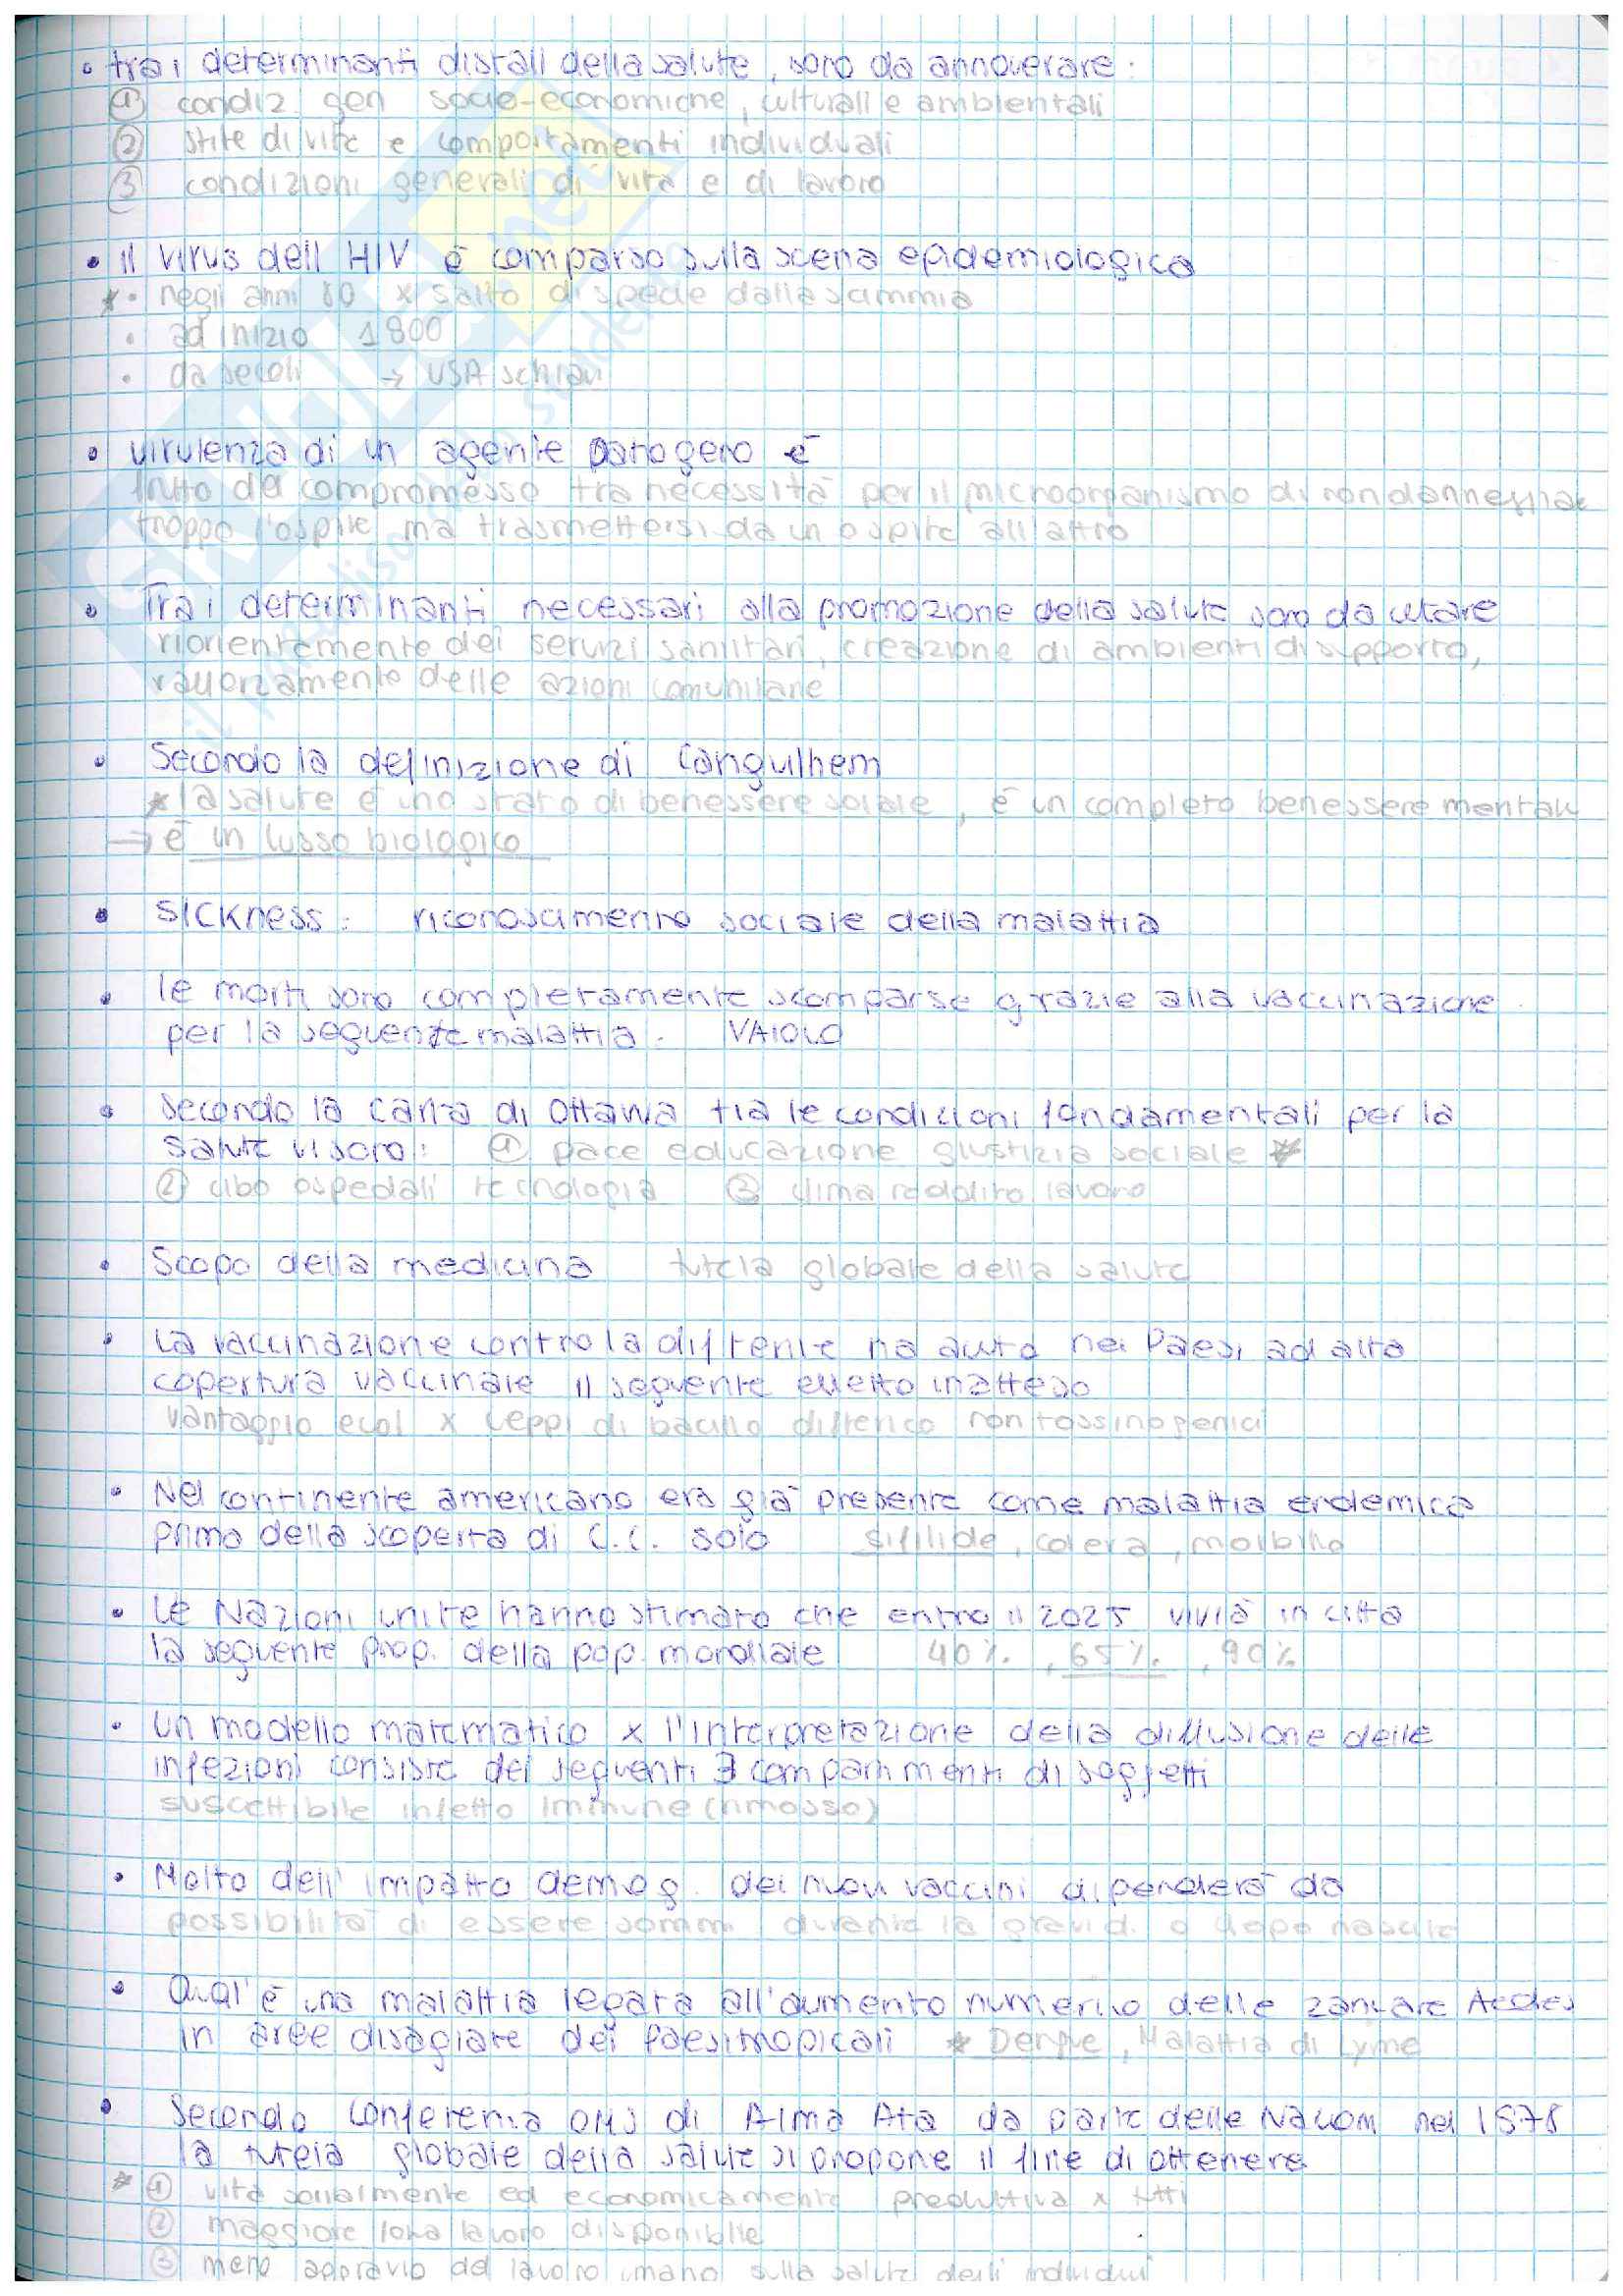 • tra i determinanti distali della salute, sono da annoverare:
① condiz. gen socio-economiche, culturali e ambientali
② stile di vita e comportamenti individuali
③ condizioni generali di vita e di lavoro
• il virus dell HIV è comparso sulla scena epidemiologica
* • negli anni 80 x salto di specie dalla scimmia
• ad inizio 1800
• da secoli → USA schiavi
• virulenza di un agente patogeno è
frutto da compromesso tra necessità per il microorganismo di non danneggiare
troppo l'ospite ma trasmettersi da un ospite all'altro
• Tra i determinanti necessari alla promozione della salute sono da citare
riorientamento dei servizi sanitari, creazione di ambienti di supporto,
rafforzamento delle azioni comunitarie
• Secondo la definizione di Canguilhem
* la salute è uno stato di benessere sociale, è un completo benessere mentale
→ è un lusso biologico
• SICKNESS: riconoscimento sociale della malattia
• le morti sono completamente scomparse grazie alla vaccinazione
per la seguente malattia: VAIOLO
• Secondo la carta di Ottawa tra le condizioni fondamentali per la
salute vi sono: ① pace educazione giustizia sociale *
② cibo ospedali tecnologia ③ clima reddito lavoro
• Scopo della medicina tutela globale della salute
• La vaccinazione contro la difterite ha avuto nei Paesi ad alta
copertura vaccinale il seguente effetto inatteso
vantaggio ecol x ceppi di bacillo difterico non tossinogenici
• Nel continente americano era già presente come malattia endemica
prima della scoperta di C.C. solo sifilide, colera, morbillo
• Le Nazioni unite hanno stimato che entro il 2025 vivrà in città
la seguente prop. della pop. mondiale 40%, 65%, 90%
• Un modello matematico x l'interpretazione della diffusione delle
infezioni consiste dei seguenti 3 compartimenti di soggetti
suscettibile infetto immune (rimosso)
• Molto dell' impatto demog. dei nuovi vaccini dipenderà da
possibilità di essere somm. durante la gravid. o dopo nascita
• Qual'è una malattia legata all'aumento numerico delle zanzare Aedes
in aree disagiate dei Paesi tropicali * Dengue, Malattia di Lyme
• Secondo Conferenza OMS di Alma Ata da parte delle Nazioni nel 1978
la tutela globale della salute si propone il fine di ottenere
* ① vita socialmente ed economicamente produttiva x tutti
② maggiore forza lavoro disponibile
③ meno aggravio del lavoro umano sulla salute degli individui